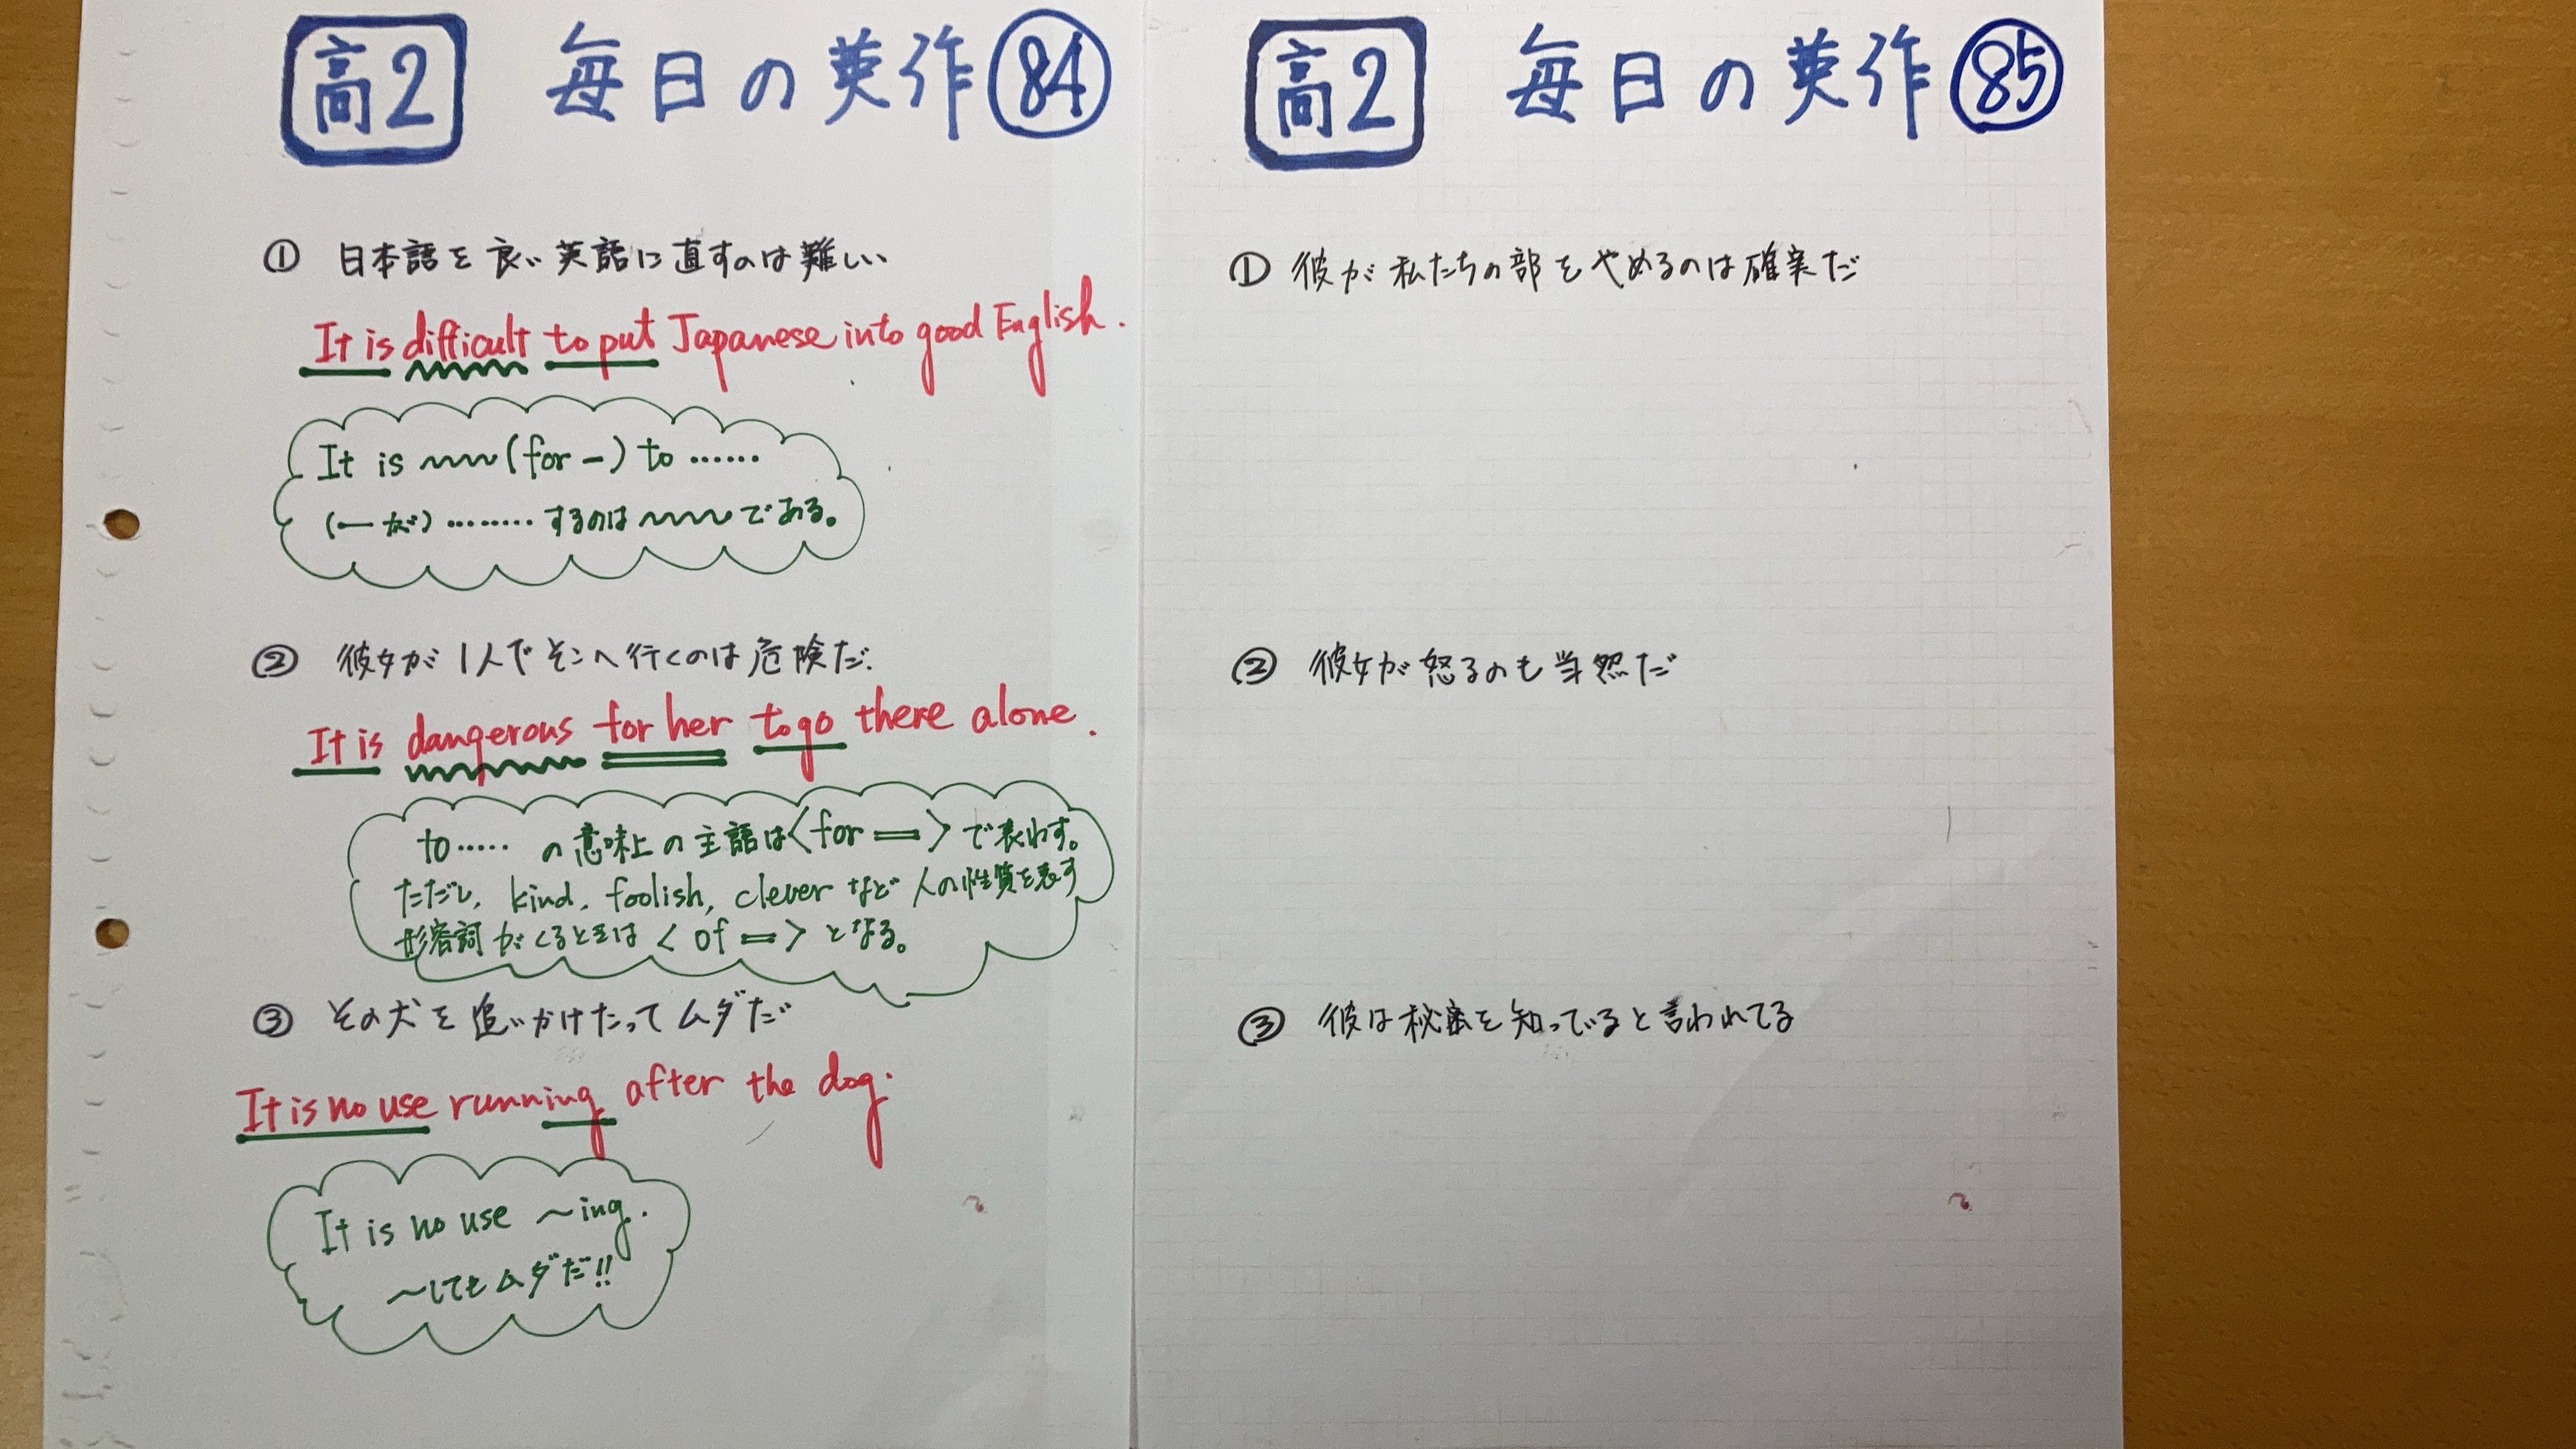 高2 毎日の英作 84
① 日本語を良い英語に直すのは難しい
It is difficult to put Japanese into good English.
It is 〰〰 (for −) to ……
(— が) ……… するのは 〰〰 である。
② 彼女が1人でそこへ行くのは危険だ.
It is dangerous for her to go there alone.
to ‥‥‥ の意味上の主語は〈for ＝〉で表わす。
ただし, kind, foolish, clever など 人の性質を表す
形容詞がくるときは 〈 of ＝ 〉 となる。
③ その犬を追いかけたってムダだ
It is no use running after the dog.
It is no use 〜ing.
〜してもムダだ!!
高2 毎日の英作 85
① 彼が私たちの部をやめるのは確実だ
② 彼女が怒るのも当然だ
③ 彼は秘密を知っでると言われてる